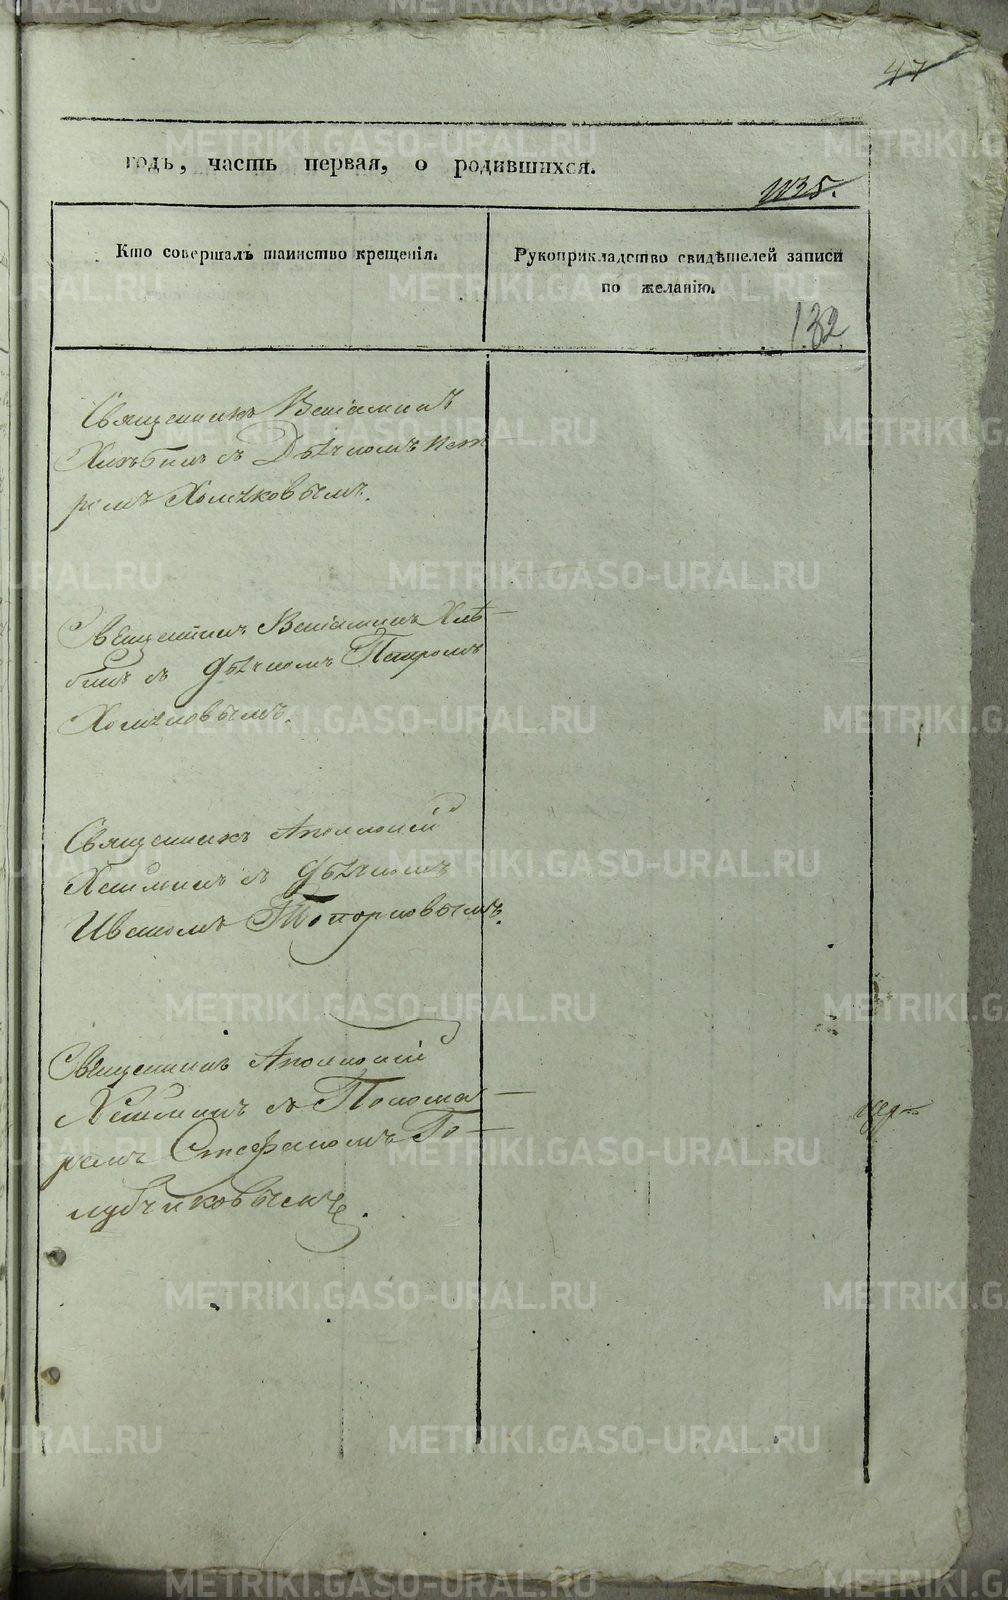 47
годъ, часть первая, о родившихся.
1135.
Кто совершалъ таинство крещенія.
Рукоприкладство свидѣтелей записи
по желанію.
132
Священникъ Веніаминъ
Хлѣбинъ съ Дьячкомъ Пет
ромъ Хомяковымъ.
Священникъ Веніаминъ Хлѣ-
бинъ съ Дьячкомъ Петромъ
Хомяковымъ.
Священникъ Аполлоній
съ Дьячкомъ
Иваномъ Топорковымъ.
Священникъ Аполлоній
съ Понома-
ремъ Стефаномъ Го-
лубчиковымъ.
METRIKI.GASO-URAL.RU